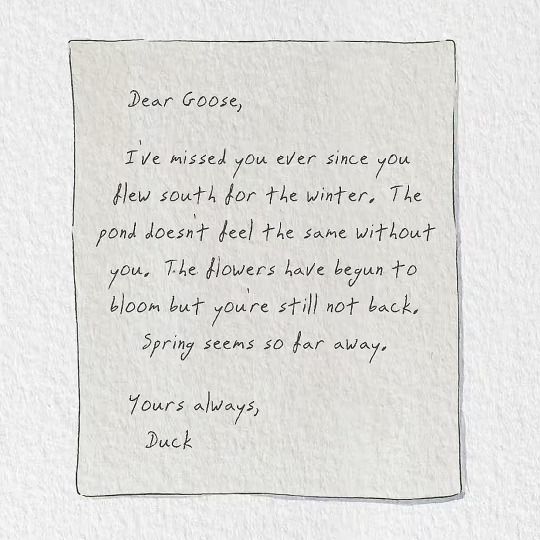 Dear Goose,
I've missed you ever since you
flew south for the winter. The
pond doesn't feel the same without
you. The flowers have begun to
bloom but you're still not back.
Spring seems so far away.
Yours always,
Duck